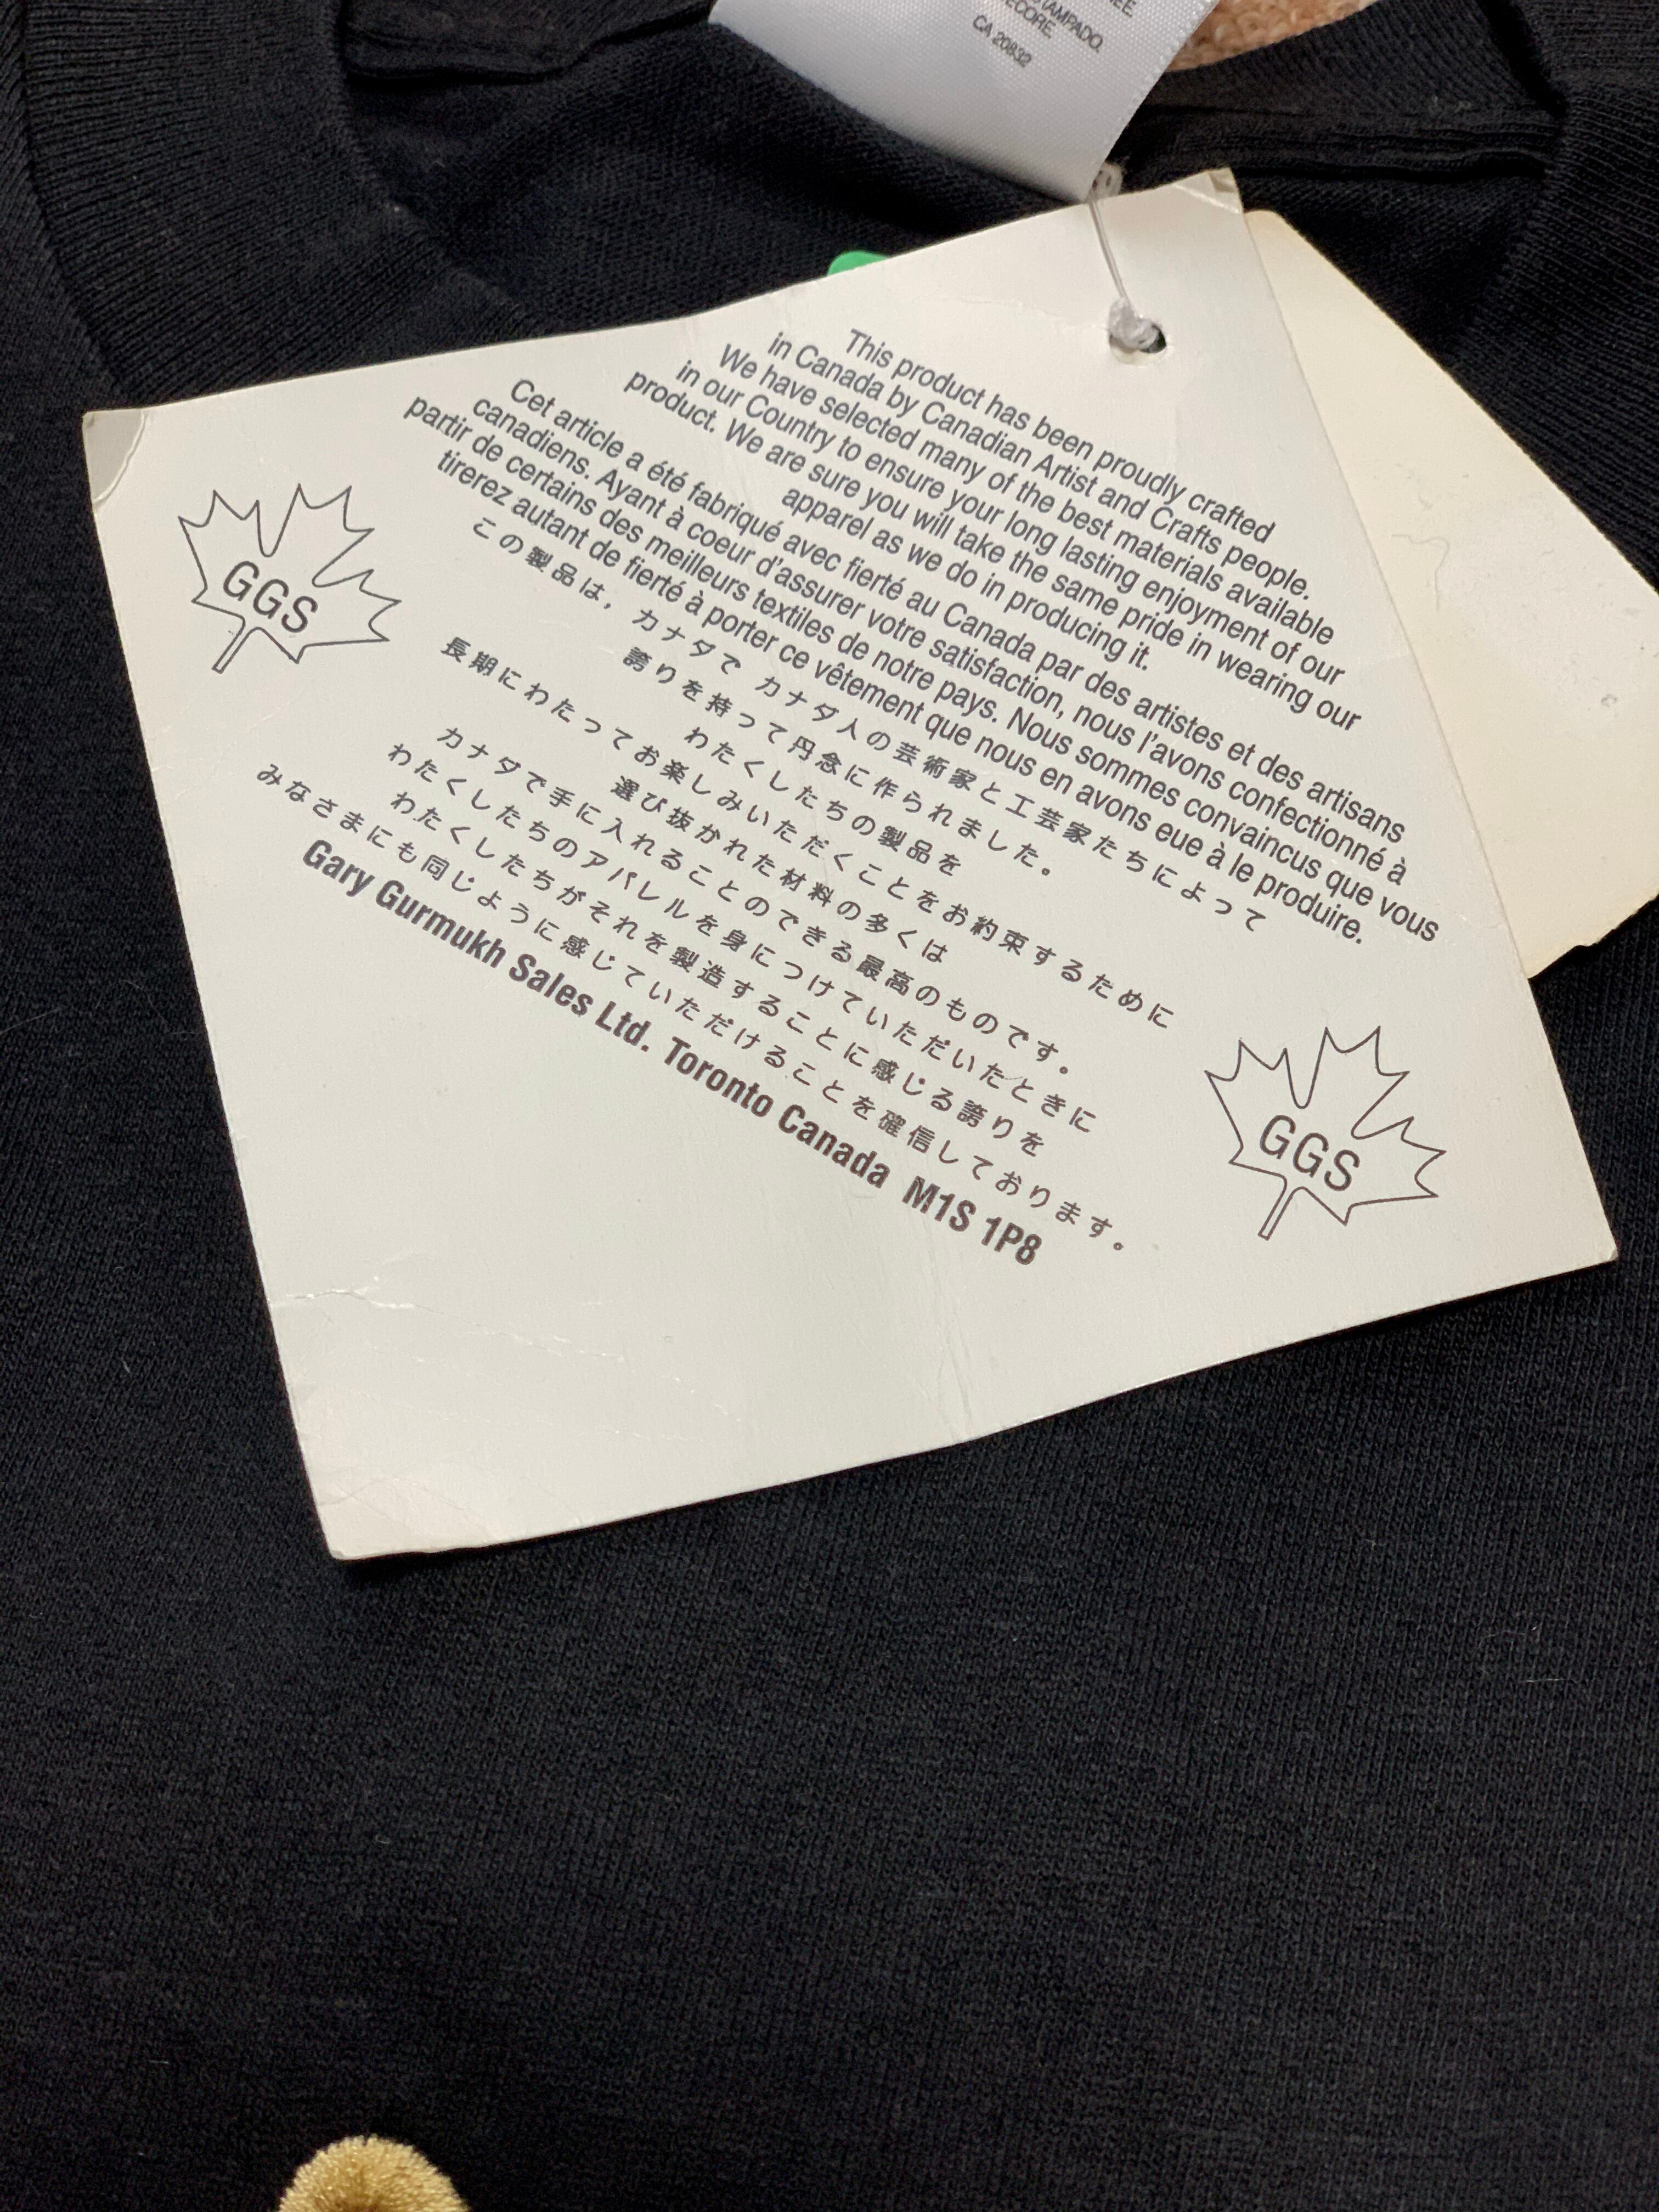 CA 20832
This product has been proudly crafted
in Canada by Canadian Artist and Crafts people.
We have selected many of the best materials available
in our Country to ensure your long lasting enjoyment of our
product. We are sure you will take the same pride in wearing our
apparel as we do in producing it.
Cet article a été fabriqué avec fierté au Canada par des artistes et des artisans
canadiens. Ayant à coeur d'assurer votre satisfaction, nous l'avons confectionné à
partir de certains des meilleurs textiles de notre pays. Nous sommes convaincus que vous
tirerez autant de fierté à porter ce vêtement que nous en avons eue à le produire.
この製品は，カナダで カナダ人の芸術家と工芸家たちによって
誇りを持って丹念に作られました。
わたくしたちの製品を
長期にわたってお楽しみいただくことをお約束するために
選び抜かれた材料の多くは
カナダで手に入れることのできる最高のものです。
わたくしたちのアパレルを身につけていただいたときに
わたくしたちがそれを製造することに感じる誇りを
みなさまにも同じように感じていただけることを確信しております。
Gary Gurmukh Sales Ltd. Toronto Canada M1S 1P8
GGS
GGS